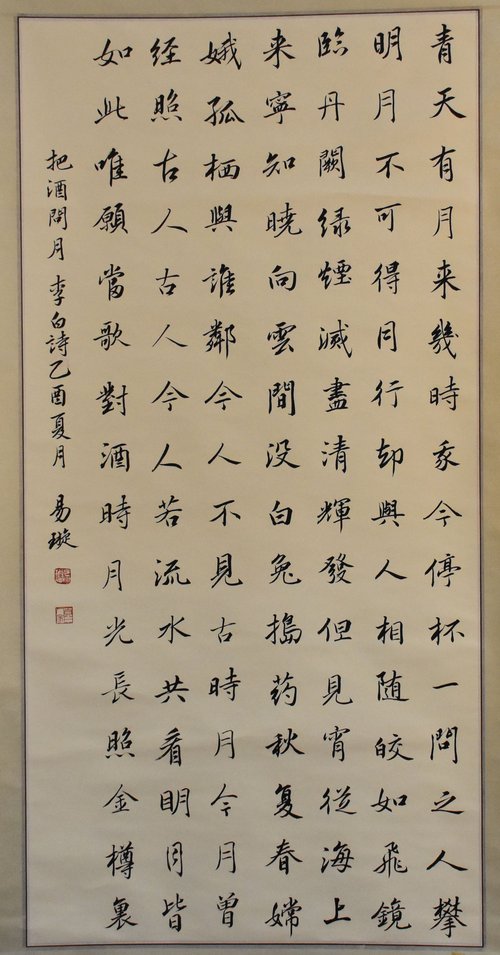 青天有月来幾時我今停杯一問之人攀
明月不可得月行却與人相随皎如飛鏡
臨丹闕緑煙滅盡清輝發但見宵從海上
来寧知曉向雲間没白兔搗药秋复春嫦
娥孤栖與誰鄰今人不見古時月今月曾
经照古人古人今人若流水共看明月皆
如此唯願當歌對酒時月光長照金樽裏
把酒問月 李白詩乙酉夏月 易璇